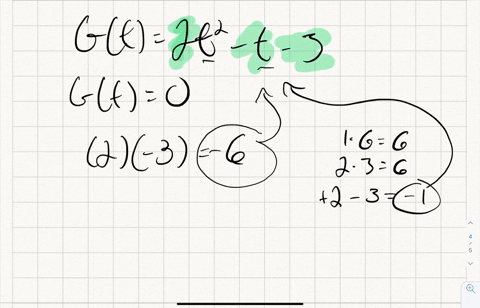 G(t) = 2t² - t - 3
G(t) = 0
(2)(-3) = -6
1·6=6
2·3=6
+2 - 3 = -1
4
/
5